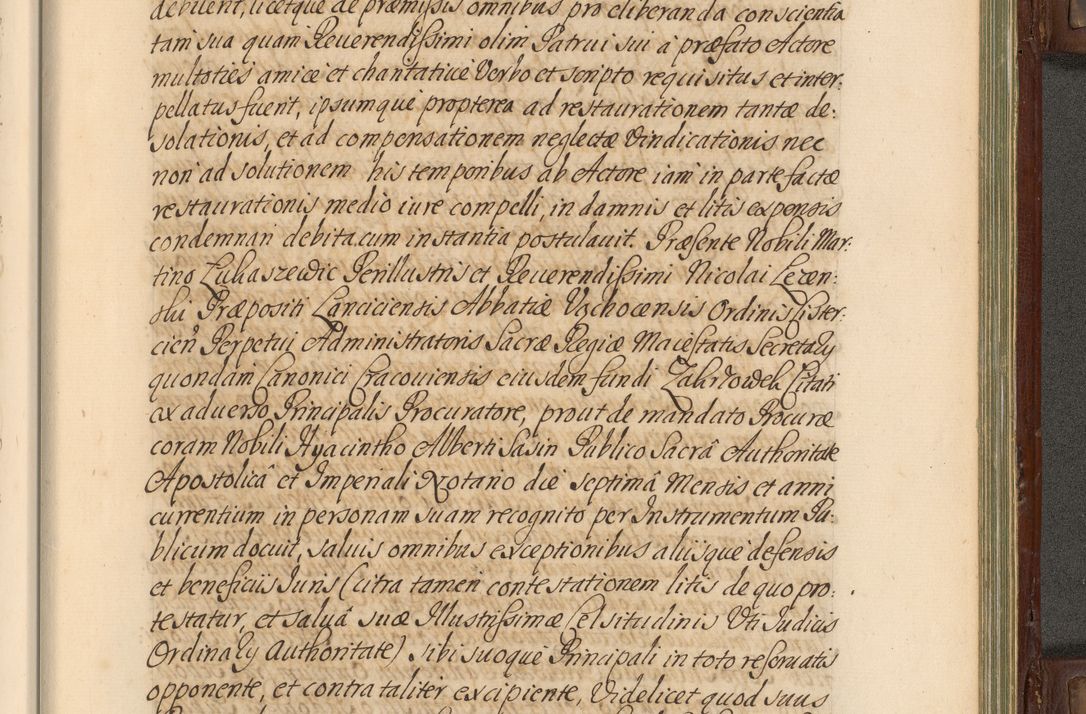 debuerit, licetque de præmissis omnibus pro eliberanda conscientia
tam sua quam Reuerendissimi olim Patrui sui à præfato Actore
multoties amice et charitatiue Verbo et scripto requisitus et inter-
pellatus fuerit, ipsumque propterea ad restaurationem tantæ de:
solationis, et ad compensationem neglectæ Vindicationis nec
non ad solutionem his temporibus ab Actore iam in parte factæ
restaurationis medio iure compelli, in damnis et litis expensis
condemnari debita cum instantia postulauit. Præsente Nobili Mar:
tino Lukaszewic Perillustris et Reuerendissimi Nicolai Lezen:
ski Præpositi Lanciciensis Abbatiæ Vachocensis Ordinis Cister:
cien Perpetui Administratoris Sacræ Regiæ Maiestatis Secretary
quondam Canonici Cracouiensis eiusdem fundi Zakrzowek Citati
ex aduerso Principalis Procuratore, prout de mandato Procuræ
coram Nobili Hyacintho Alberti Sasin Publico Sacrâ Authoritate
Apostolicâ et Imperiali Notario die septimâ Mensis et anni
currentium in personam suam recognito per Instrumentum Pu:
blicum docuit, saluis omnibus exceptionibus alijsque defensis
et beneficijs Iuris (citra tamen contestationem litis de quo pro:
testatur, et saluâ suæ Illustrissimæ Celsitudinis Vti Iudicis
Ordinary Authoritate) sibi suoque Principali in toto reseruatis
opponente, et contra taliter excipiente, Videlicet quod suus